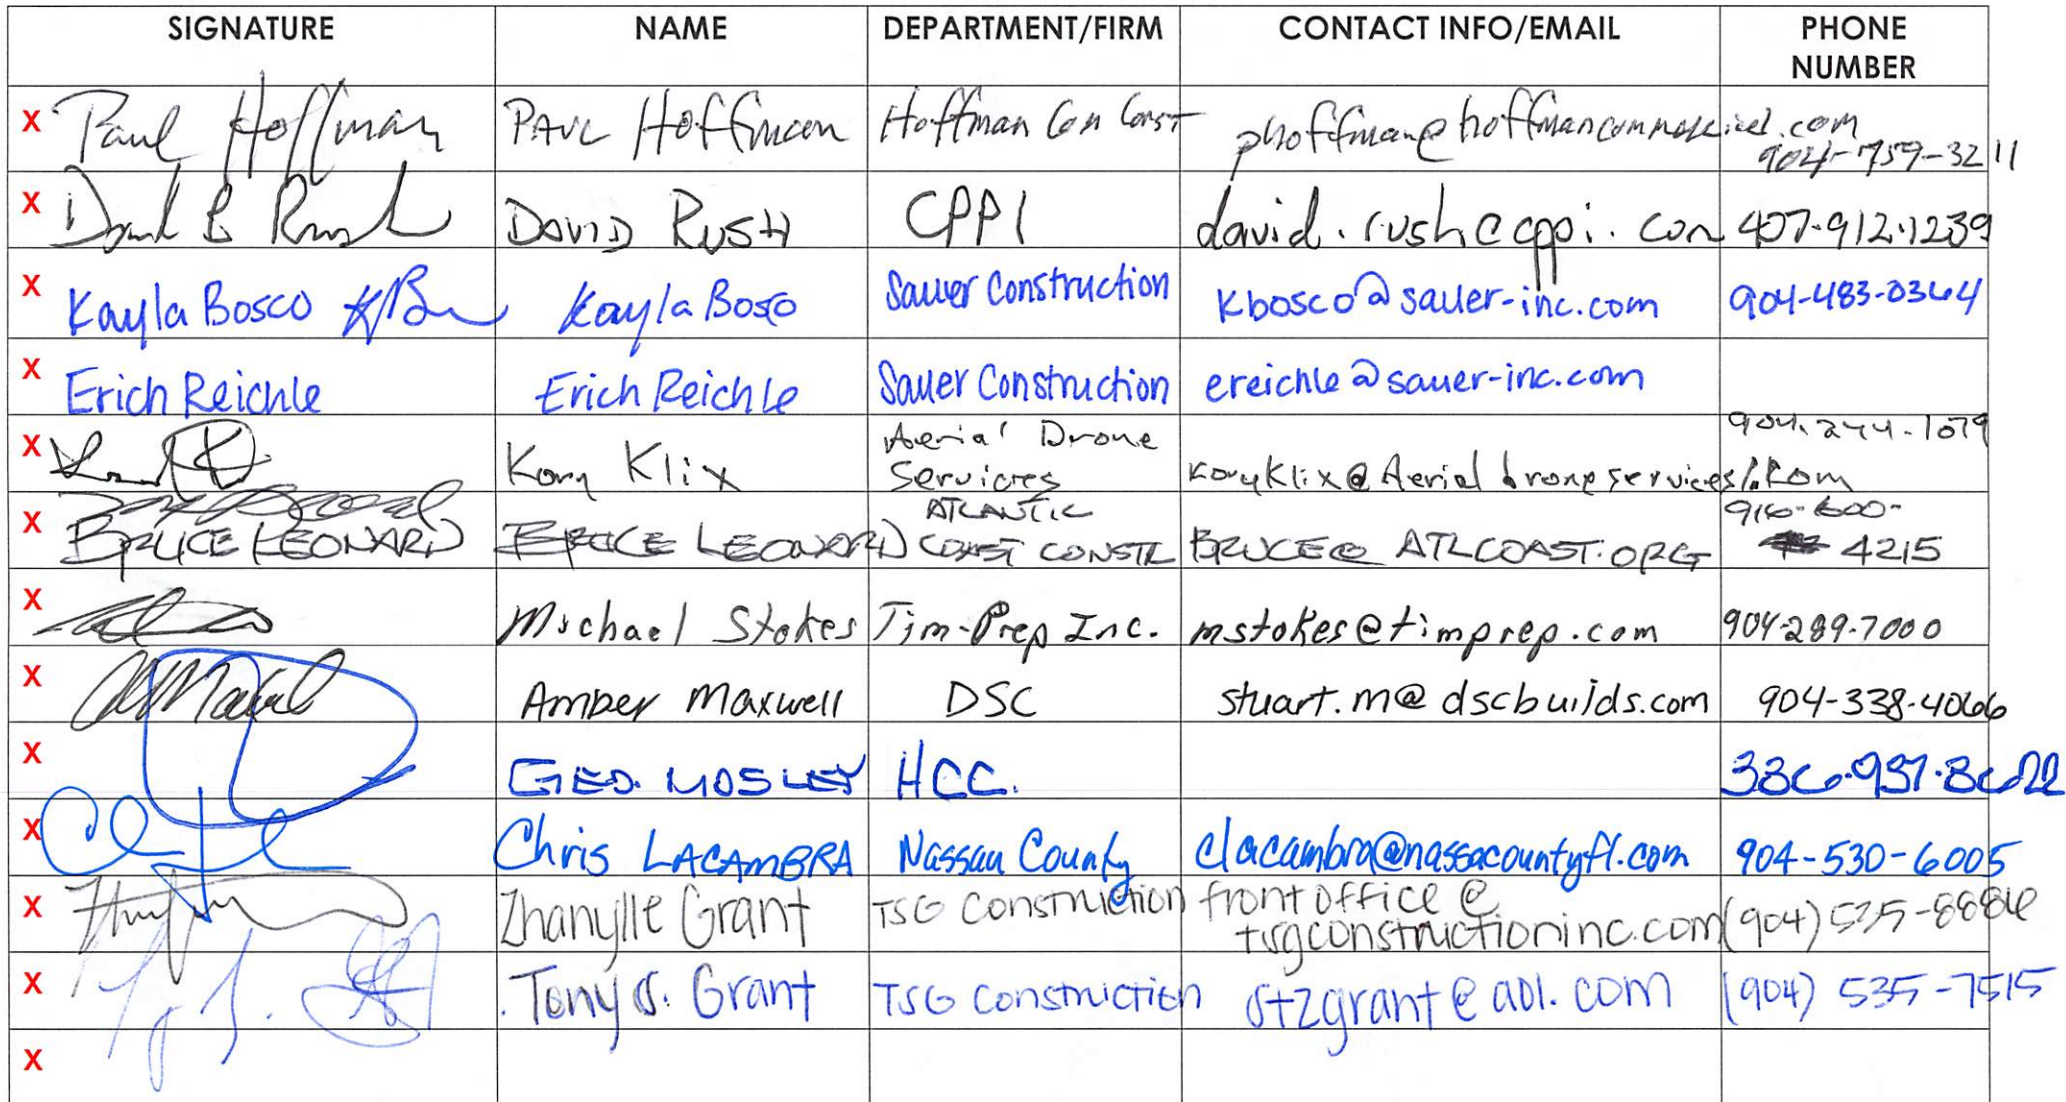 SIGNATURE NAME DEPARTMENT/FIRM CONTACT INFO/EMAIL PHONE
NUMBER
X Paul Hoffman PAUL Hoffman Hoffman Com Const phoffman@hoffmancommercial.com
904-759-3211
X David B Rush DAVID RUSH CPPI david.rush@cppi.com 407-912-1239
X Kayla Bosco Kayla Bosco Sauer Construction kbosco@sauer-inc.com 904-483-0364
X Erich Reichle Erich Reichle Sauer Construction ereichle@sauer-inc.com
Aerial Drone 904.244.1079
X Kory Klix Services KoryKlix@Aerialdroneservices.com
ATLANTIC 916-600-
X BRUCE LEONARD BRUCE LEONARD COAST CONSTR BRUCE@ATLCOAST.ORG 4215
X Michael Stokes Tim-Prep Inc. mstokes@timprep.com 904-289-7000
X Amber Maxwell DSC stuart.m@dscbuilds.com 904-338-4066
X GEO. MOSLEY HCC.
X Chris LACAMBRA Nassau County clacambra@nassacountyfl.com 904-530-6005
X Zhanylle Grant TSG Construction frontoffice@
tsgconstructioninc.com (904) 535-8886
X Tony S. Grant TSG Construction stzgrant@aol.com (904) 535-7515
X